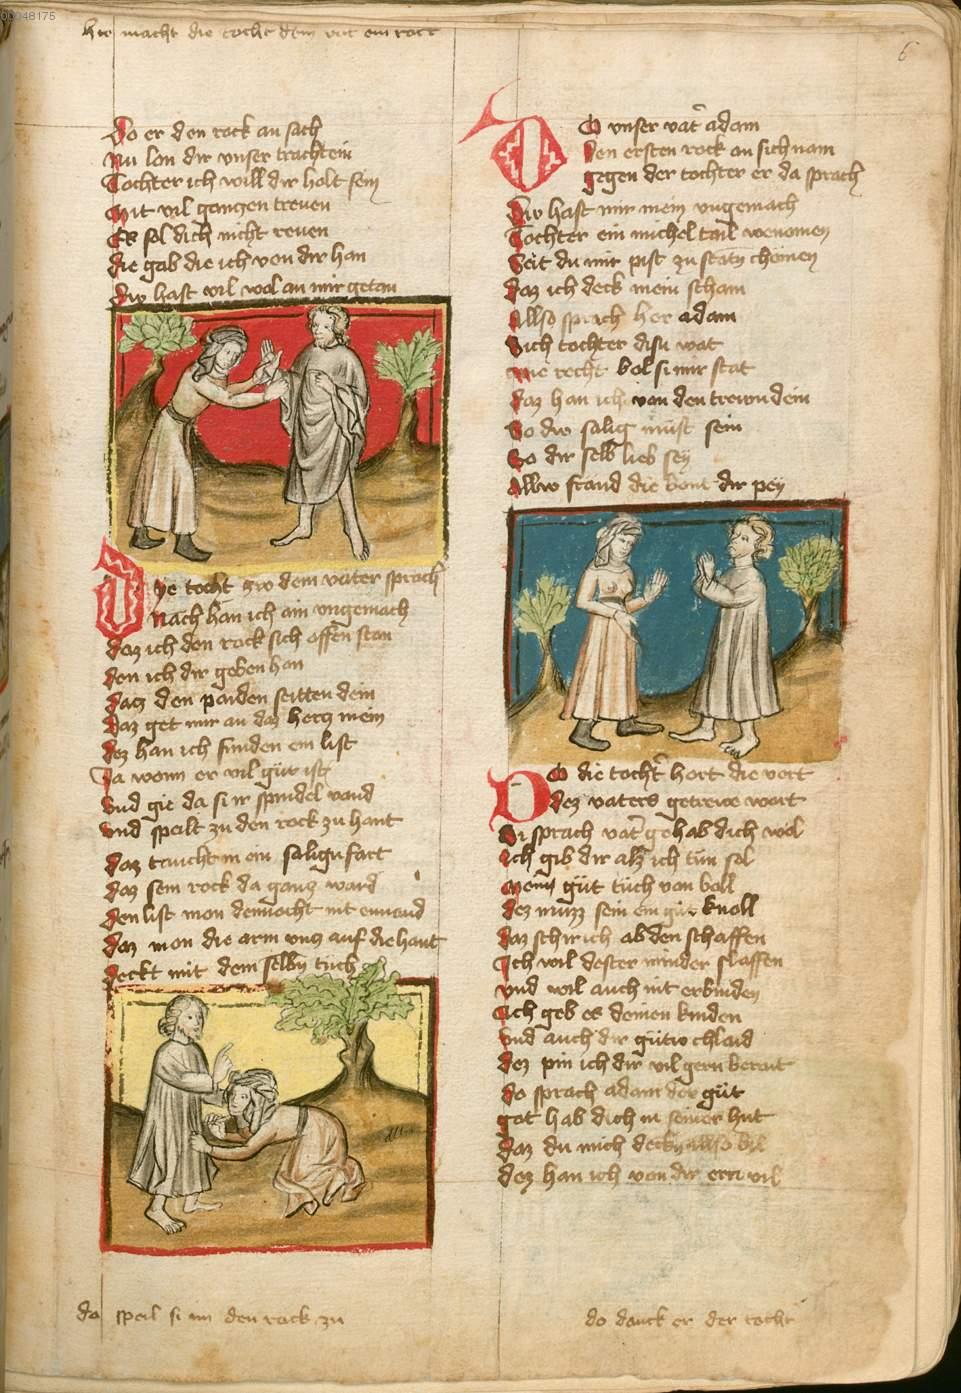 00048175
6
hie macht die tocht dem vat ein rock
Do er den rock an sach
Nu lon dir unser trachtein
Tochter ich will dir holt sein
Mit vil ganczen treuen
Es sol dich nicht reuen
die gab die ich von dir han
Div hast vil wol an mir getan
Dye tocht zw dem vater sprach
Nach han ich ain vngemach
daz ich den rock sich offen stan
den ich dir geben han
dacz den paiden seitten dein
Daz get mir an daz hercz mein
dez han ich funden ein list
Ja wenn er vil gut ist
Vnd gie da si ir spindel vand
Vnd speilt zu den rock zu hant
daz taucht in ein salign fart
daz sein rock da gancz ward
den list mon dennocht nit envand
daz mon die arm vncz auf die hant
deckt mit dem selbn tuch
do speil si im den rock zu
DO unser vat adam
Den ersten rock an sich nam
gegen der tochter er da sprach
Div hast mir mein vngemach
Tochter ein michel tail wenomen
Seit du mir pist zu statn chomen
daz ich deck mein scham
Allso sprach her adam
Sich tochter disu wat
wie recht wol si mir stat
daz han ich von den trewn dein
So div salig must sein
So dir selb lieb sey
Albw stand die dir pey
DO die tocht hort die vort
dez vaters getrewe wort
Si sprach vat gehab dich wol
Ich gib dir alz ich tun sol
Mein gut tuch von woll
dez muzz sein ein gut knoll
Daz schir ich ab den schaffen
Ich wil dester minder slaffen
vnd wil auch nit erbinden
Ich geb es deinen kinden
vnd auch dir gutiv chlaid
dez pin ich dir vil gern berait
do sprach adam der gut
got hab dich in seiner hut
daz du mich deckn allso wil
dez han ich von dir ern vil
do danck er der tocht